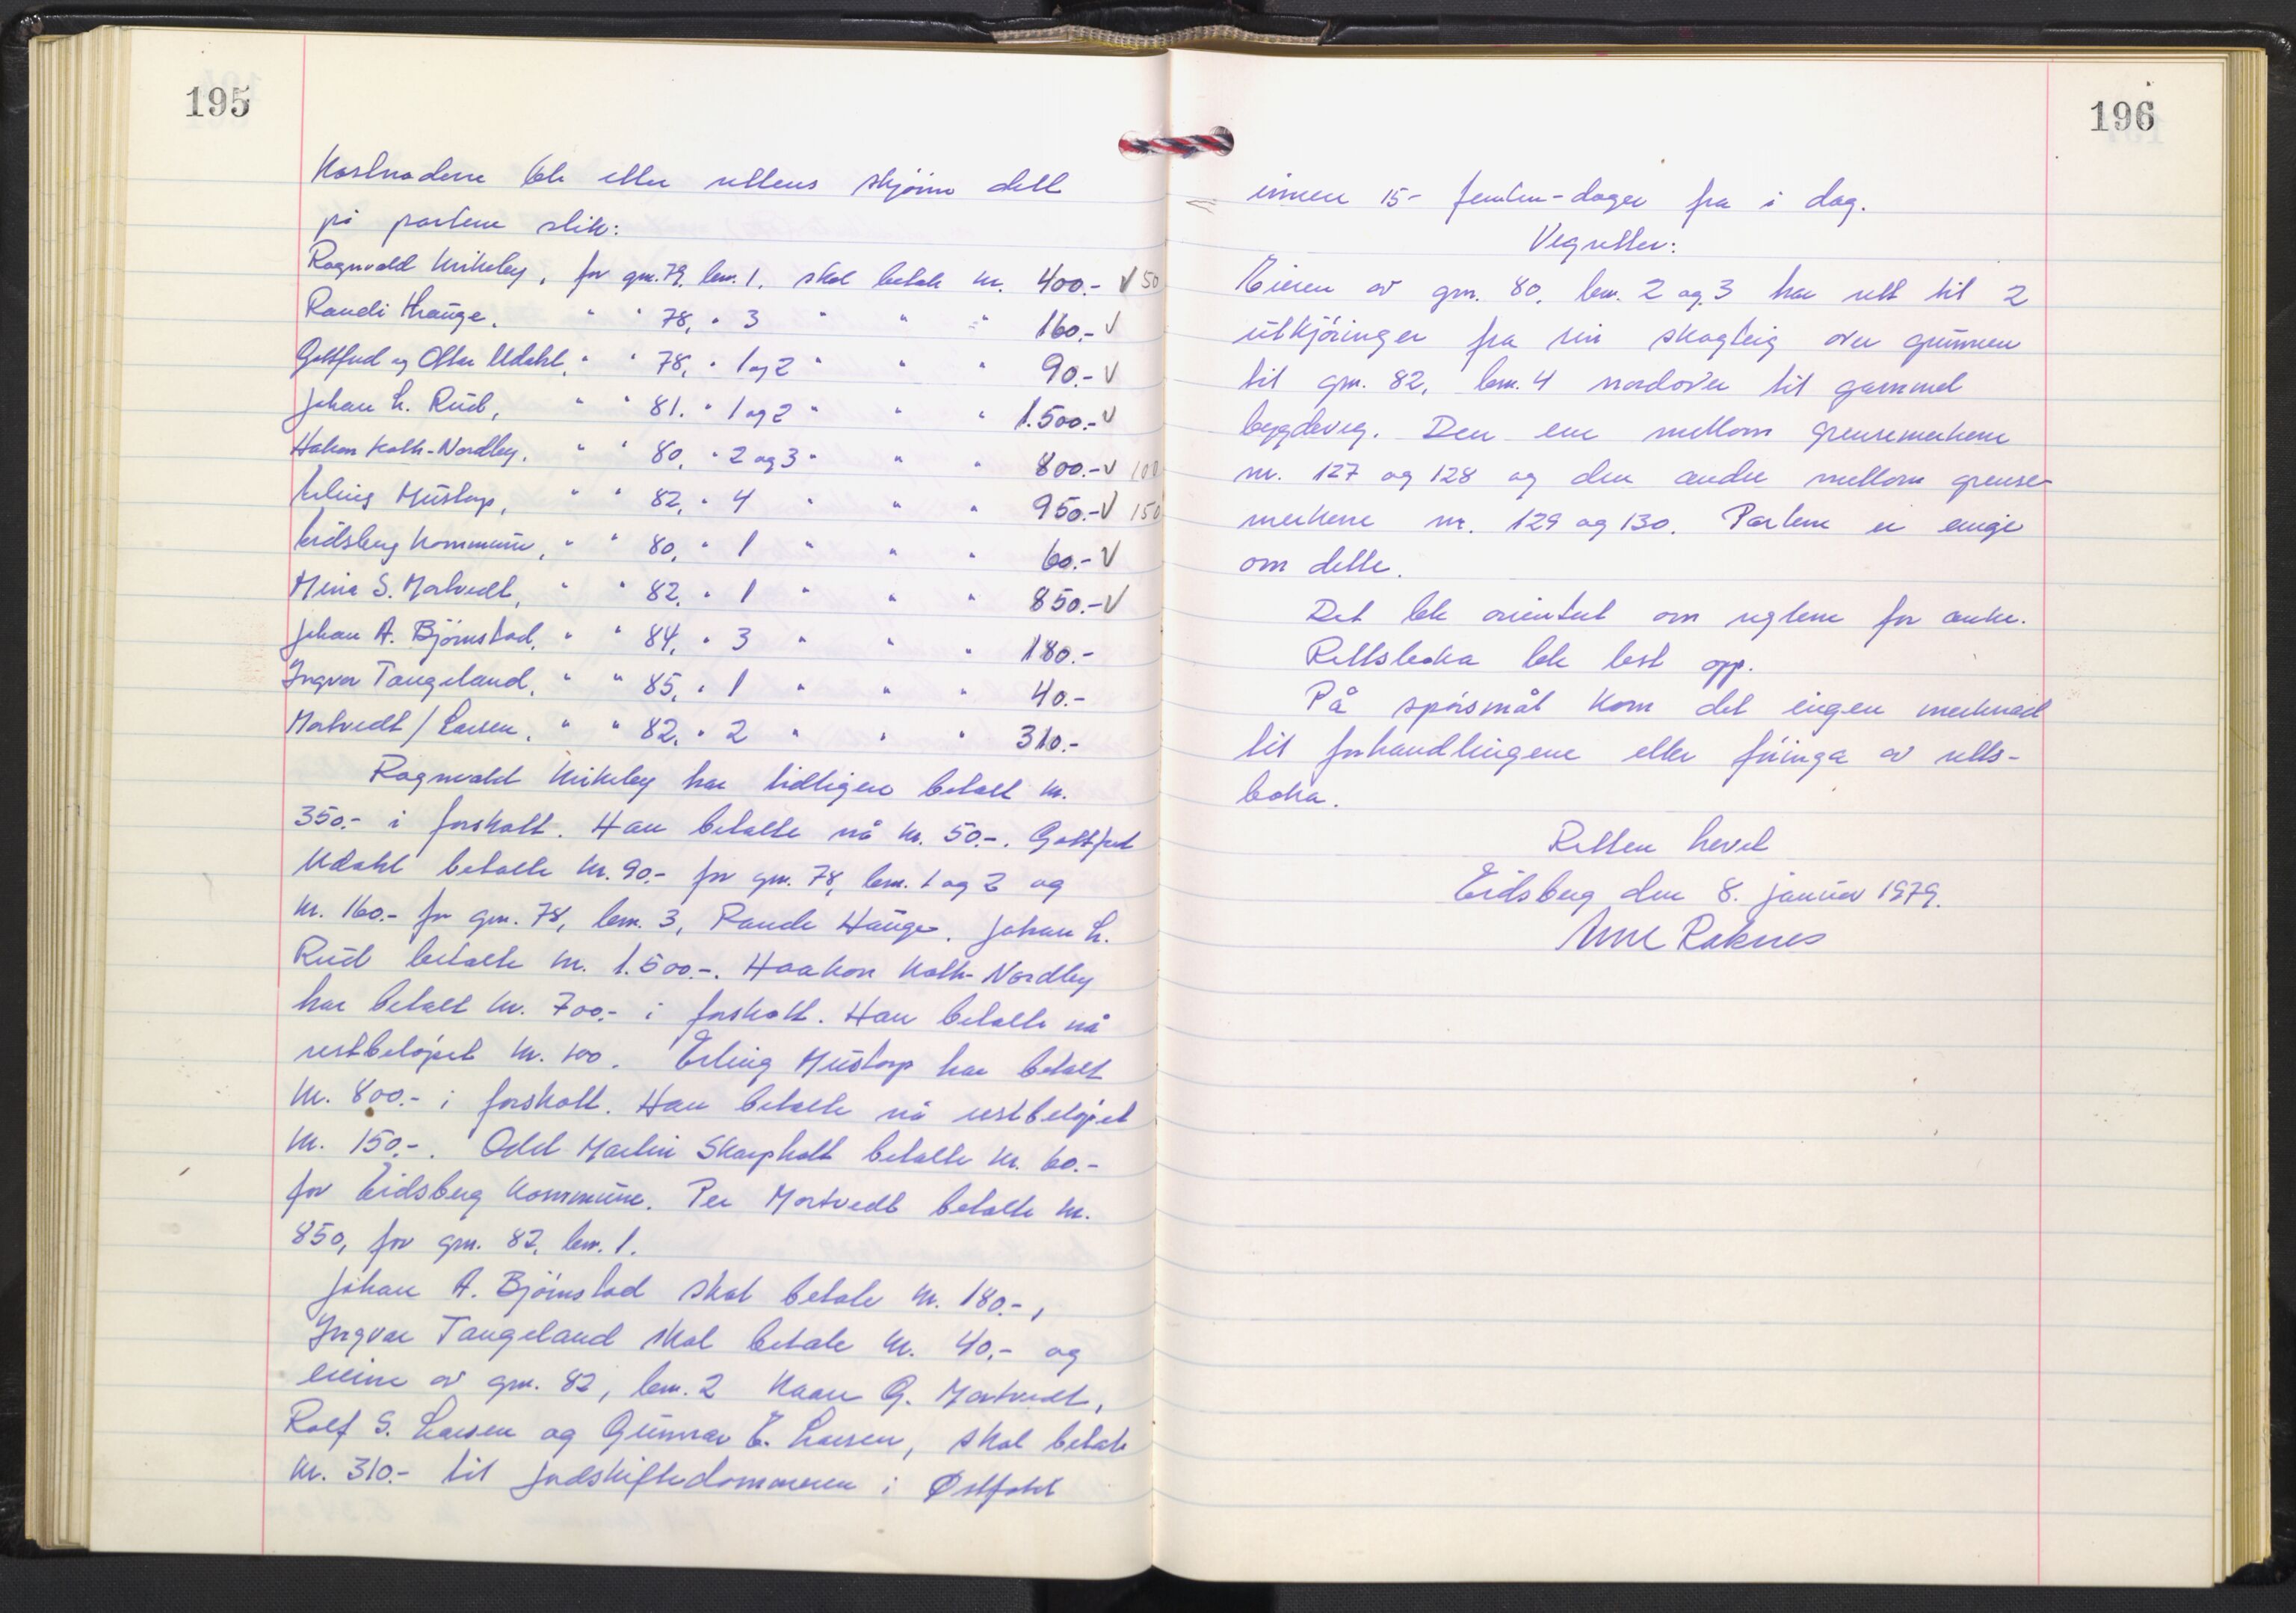 195
Kostnadene ble etter rettens skjønn delt
på partene slik:
Ragnvald Kirkeby, for gnr. 79, bnr. 1, skal betale kr. 400.- V 50
Randi Hauge, " " 78, " 3 " " " 160.- V
Gottfred og Ottar Udahl, " " 78, " 1 og 2 " " " 90.- V
Johan L. Rud, " " 81. " 1 og 2 " " " 1.500.- V
Håkon Kolh-Nordby, " " 80, " 2 og 3 " " " 800.- V 100
Erling Mustorp, " " 82, " 4 " " " 950.- V 150
Eidsberg kommune, " " 80, " 1 " " " 60.- V
Mina S. Mortvedt, " " 82, " 1 " " " 850.- V
Johan A. Bjørnstad, " " 84, " 3 " " " 180.-
Ingvar Tangeland, " " 85, " 1 " " " 40.-
Mortvedt / Larsen, " " 82, " 2 " " " 310.-
Ragnvald Kirkeby har tidligere betalt kr.
350.- i forskott. Han betalte nå kr. 50.-. Gottfred
Udahl betalte kr. 90.- for gnr. 78, bnr. 1 og 2 og
kr. 160.- for gnr. 78, bnr. 3, Randi Hauge. Johan L.
Rud betalte kr. 1.500.-. Haakon Kolh-Nordby
har betalt kr. 700.- i forskott. Han betalte nå
restbeløpet kr. 100. Erling Mustorp har betalt
kr. 800.- i forskott. Han betalte nå restbeløpet
kr. 150.-. Odd Martin Skarpholt betalte kr. 60.-
for Eidsberg kommune. Per Mortvedt betalte kr.
850, for gnr. 82, bnr. 1.
Johan A. Bjørnstad skal betale kr. 180.-,
Ingvar Tangeland skal betale kr. 40.- og
eierne av gnr. 82, bnr. 2 Kaare G. Mortvedt,
Rolf S. Larsen og Gunnar E. Larsen, skal betale
kr. 310.- til jordskiftedommeren i Østfold
196
innen 15- femten-dager fra i dag.
Vegretter:
Eieren av gnr. 80, bnr. 2 og 3 har rett til 2
utkjøringer fra sin skogteig over grunnen
til gnr. 82, bnr. 4 nordover til gammel
bygdeveg. Den ene mellom grensemerkene
nr. 127 og 128 og den andre mellom grense-
merkene nr. 129 og 130. Partene er enige
om dette.
Det ble orientert om reglene for anke.
Rettsboka ble lest opp.
På spørsmål kom det ingen merknad
til forhandlingene eller føringa av retts-
boka.
Retten hevet
Eidsberg den 8. januar 1979.
Arne Raknes